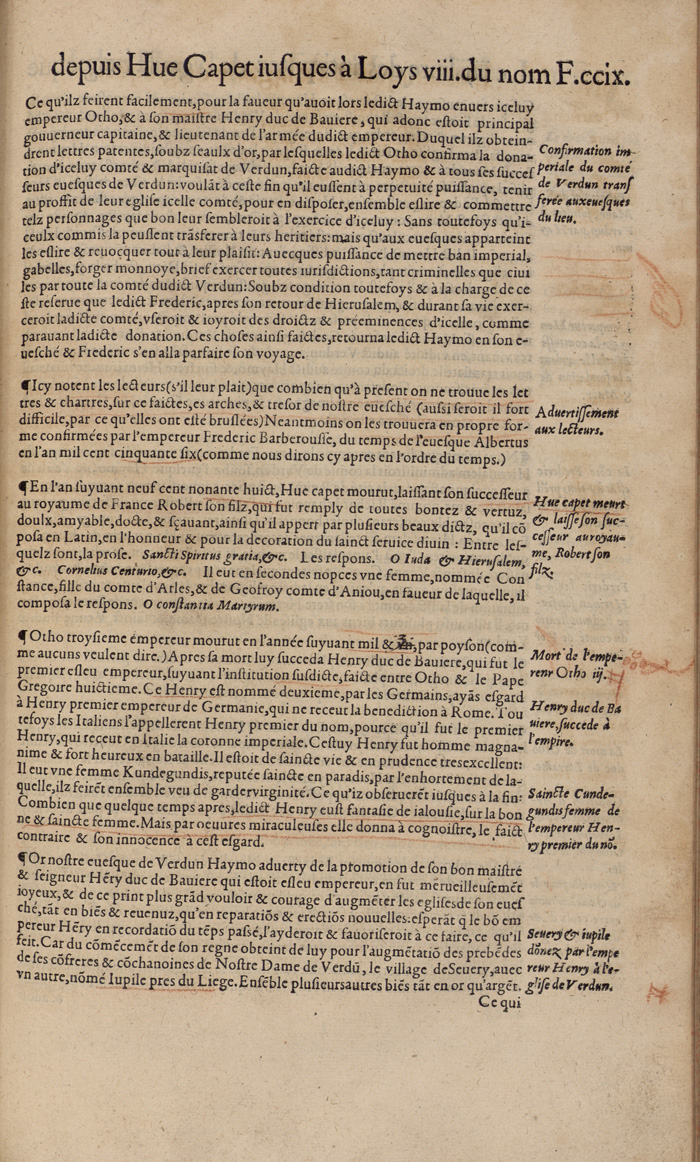 depuis Hue Capet iuſques à Loys viii.du nom F.ccix.
Ce qu'ilz feirent facilement,pour la faueur qu'auoit lors ledict Haymo enuers iceluy
empereur Otho,& à ſon maiſtre Henry duc de Bauiere, qui adonc eſtoit principal
gouuerneur capitaine, & lieutenant de l'armée dudict empereur. Duquel ilz obtein-
drent lettres patentes,ſoubz ſeaulx d'or,par leſquelles ledict Otho confirma la dona-
tion d'iceluy comté & marquiſat de Verdun,faicte audict Haymo & à tous ſes ſucceſ
ſeurs eueſques de Verdun:voulāt à ceſte fin qu'il euſſent à perpetuité puiſſance, tenir
au proffit de leur egliſe icelle comté,pour en diſpoſer,enſemble eſlire & commettre
telz perſonnages que bon leur ſembleroit à l'exercice d'iceluy : Sans toutefoys qu'i-
ceulx commis la peuſſent trāsferer à leurs heritiers:mais qu'aux eueſques apparteint
les eſlire & reuocquer tout à leur plaiſir: Auecques puiſſance de mettre ban imperial,
gabelles,forger monnoye,brief exercer toutes iuriſdictions,tant criminelles que ciui
les par toute la comté dudict Verdun:Soubz condition toutefoys & à la charge de ce
ſte reſerue que ledict Frederic,apres ſon retour de Hieruſalem, & durant ſa vie exer-
ceroit ladicte comté,vſeroit & ioyroit des droictz & préeminences d'icelle, comme
parauant ladicte donation. Ces choſes ainſi faictes,retourna ledict Haymo en ſon e-
ueſché & Frederic s'en alla parfaire ſon voyage.
Confirmation im-
periale du comté
de Verdun tranſ
ferée aux eueſques
du lieu.
¶Icy notent les lecteurs(s'il leur plait)que combien qu'à preſent on ne trouue les let
tres & chartres,ſur ce faictes,es arches,& treſor de noſtre eueſché (auſsi ſeroit il fort
difficile,par ce qu'elles ont eſté bruſlées) Neantmoins on les trouuera en propre for-
me confirmées par l'empereur Frederic Barberouſſe, du temps de l'eueſque Albertus
en l'an mil cent cinquante ſix(comme nous dirons cy apres en l'ordre du temps.)
Aduertiſſement
aux lecteurs.
¶En l'an ſuyuant neuf cent nonante huict,Hue capet mourut,laiſſant ſon ſucceſſeur
au royaume de France Robert ſon filz,qui fut remply de toutes bontez & vertuz,
doulx,amyable,docte,& ſçauant,ainſi qu'il appert par pluſieurs beaux dictz, qu'il cō
poſa en Latin,en l'honneur & pour la decoration du ſainct ſeruice diuin : Entre leſ-
quelz ſont,la proſe. Sancti Spiritus gratia,&c. Les reſpons. O Iuda & Hieruſalem,
&c. Cornelius Centurio,&c. Il eut en ſecondes nopces vne femme,nommée Con
ſtance,fille du comte d'Arles,& de Geofroy comte d'Aniou,en faueur de laquelle, il
compoſa le reſpons. O conſtantia Martyrum.
Hue capet meurt
& laiſſe ſon ſuc-
ceſſeur au royau-
me, Robert ſon
filz.
¶Otho troyſieme empereur mourut en l'année ſuyuant mil & par poyſon(com-
me aucuns veulent dire.) Apres ſa mort luy ſucceda Henry duc de Bauiere,qui fut le
premier eſleu empereur,ſuyuant l'inſtitution ſuſdicte,faicte entre Otho & le Pape
Gregoire huictieme. Ce Henry eſt nommé deuxieme,par les Germains,ayās eſgard
à Henry premier empereur de Germanie,qui ne receut la benediction à Rome. Tou
tefoys les Italiens l'appellerent Henry premier du nom,pource qu'il fut le premier
Henry,qui receut en Italie la coronne imperiale. Ceſtuy Henry fut homme magna-
nime & fort heureux en bataille. Il eſtoit de ſaincte vie & en prudence tresexcellent:
Il eut vne femme Kundegundis,reputée ſaincte en paradis,par l'enhortement de la-
quelle,ilz feirēt enſemble veu de garder virginité. Ce qu'iz obſeruerēt iuſques à la fin:
Combien que quelque temps apres,ledict Henry euſt fantaſie de ialouſie,ſur la bon
ne & ſaincte femme. Mais par oeuures miraculeuſes elle donna à cognoiſtre, le faict
contraire & ſon innocence à ceſt eſgard.
Mort de l'empe-
reur Otho iij.
Henry duc de Ba
uiere,ſuccede à
l'empire.
Saincte Cunde-
gundis femme de
l'empereur Hen-
ry premier du nō.
¶Or noſtre eueſque de Verdun Haymo aduerty de la promotion de ſon bon maiſtre
& ſeigneur Hēry duc de Bauiere qui eſtoit eſleu empereur,en fut merueilleuſemēt
ioyeux,& de ce print plus grād vouloir & courage d'augmēter les egliſes de ſon eueſ
ché,tāt en biēs & reuenuz,qu'en reparatiōs & erectiōs nouuelles:eſperāt q̄ le bō em
pereur Hēry en recordatiō du tēps paſſé,l'ayderoit & fauoriſeroit à ce faire, ce qu'il
feit. Car du cōmēcemēt de ſon regne obteint de luy pour l'augmētatiō des prebēdes
de ſes cōfreres & cōchanoines de Noſtre Dame de Verdū, le village de Seuery,auec
vn autre,nōmé Iupile pres du Liege. Enſēble pluſieurs autres biēs tāt en or qu'argēt.
Seuery & iupile
dōnez par l'empe
reur Henry à l'e-
gliſe de Verdun.
Ce qui